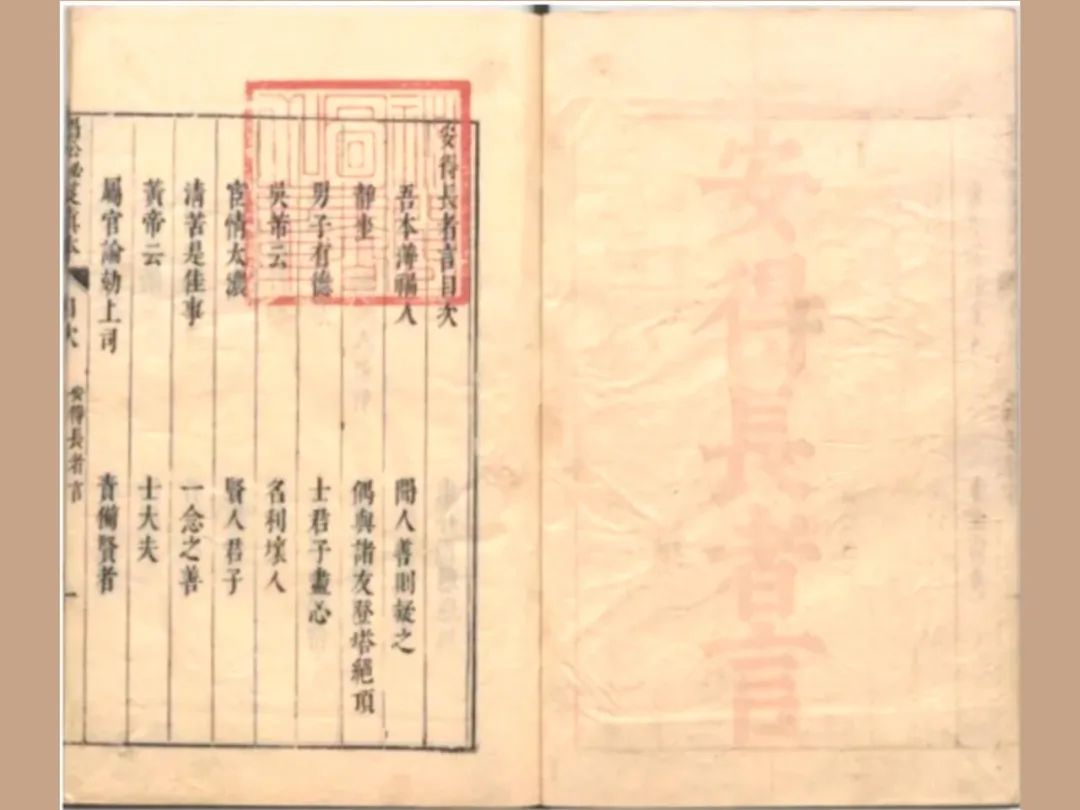 安得長者言
安得長者言目次
吾本薄福人 聞人善則疑之
靜坐 偶與諸友登塔絕頂
男子有德 士君子盡心
吳芾云 名利壞人
宦情太濃 賢人君子
清苦是佳事 一念之善
黃帝云 士大夫
屬官論劾上司 責備賢者
目次 安得長者言 一